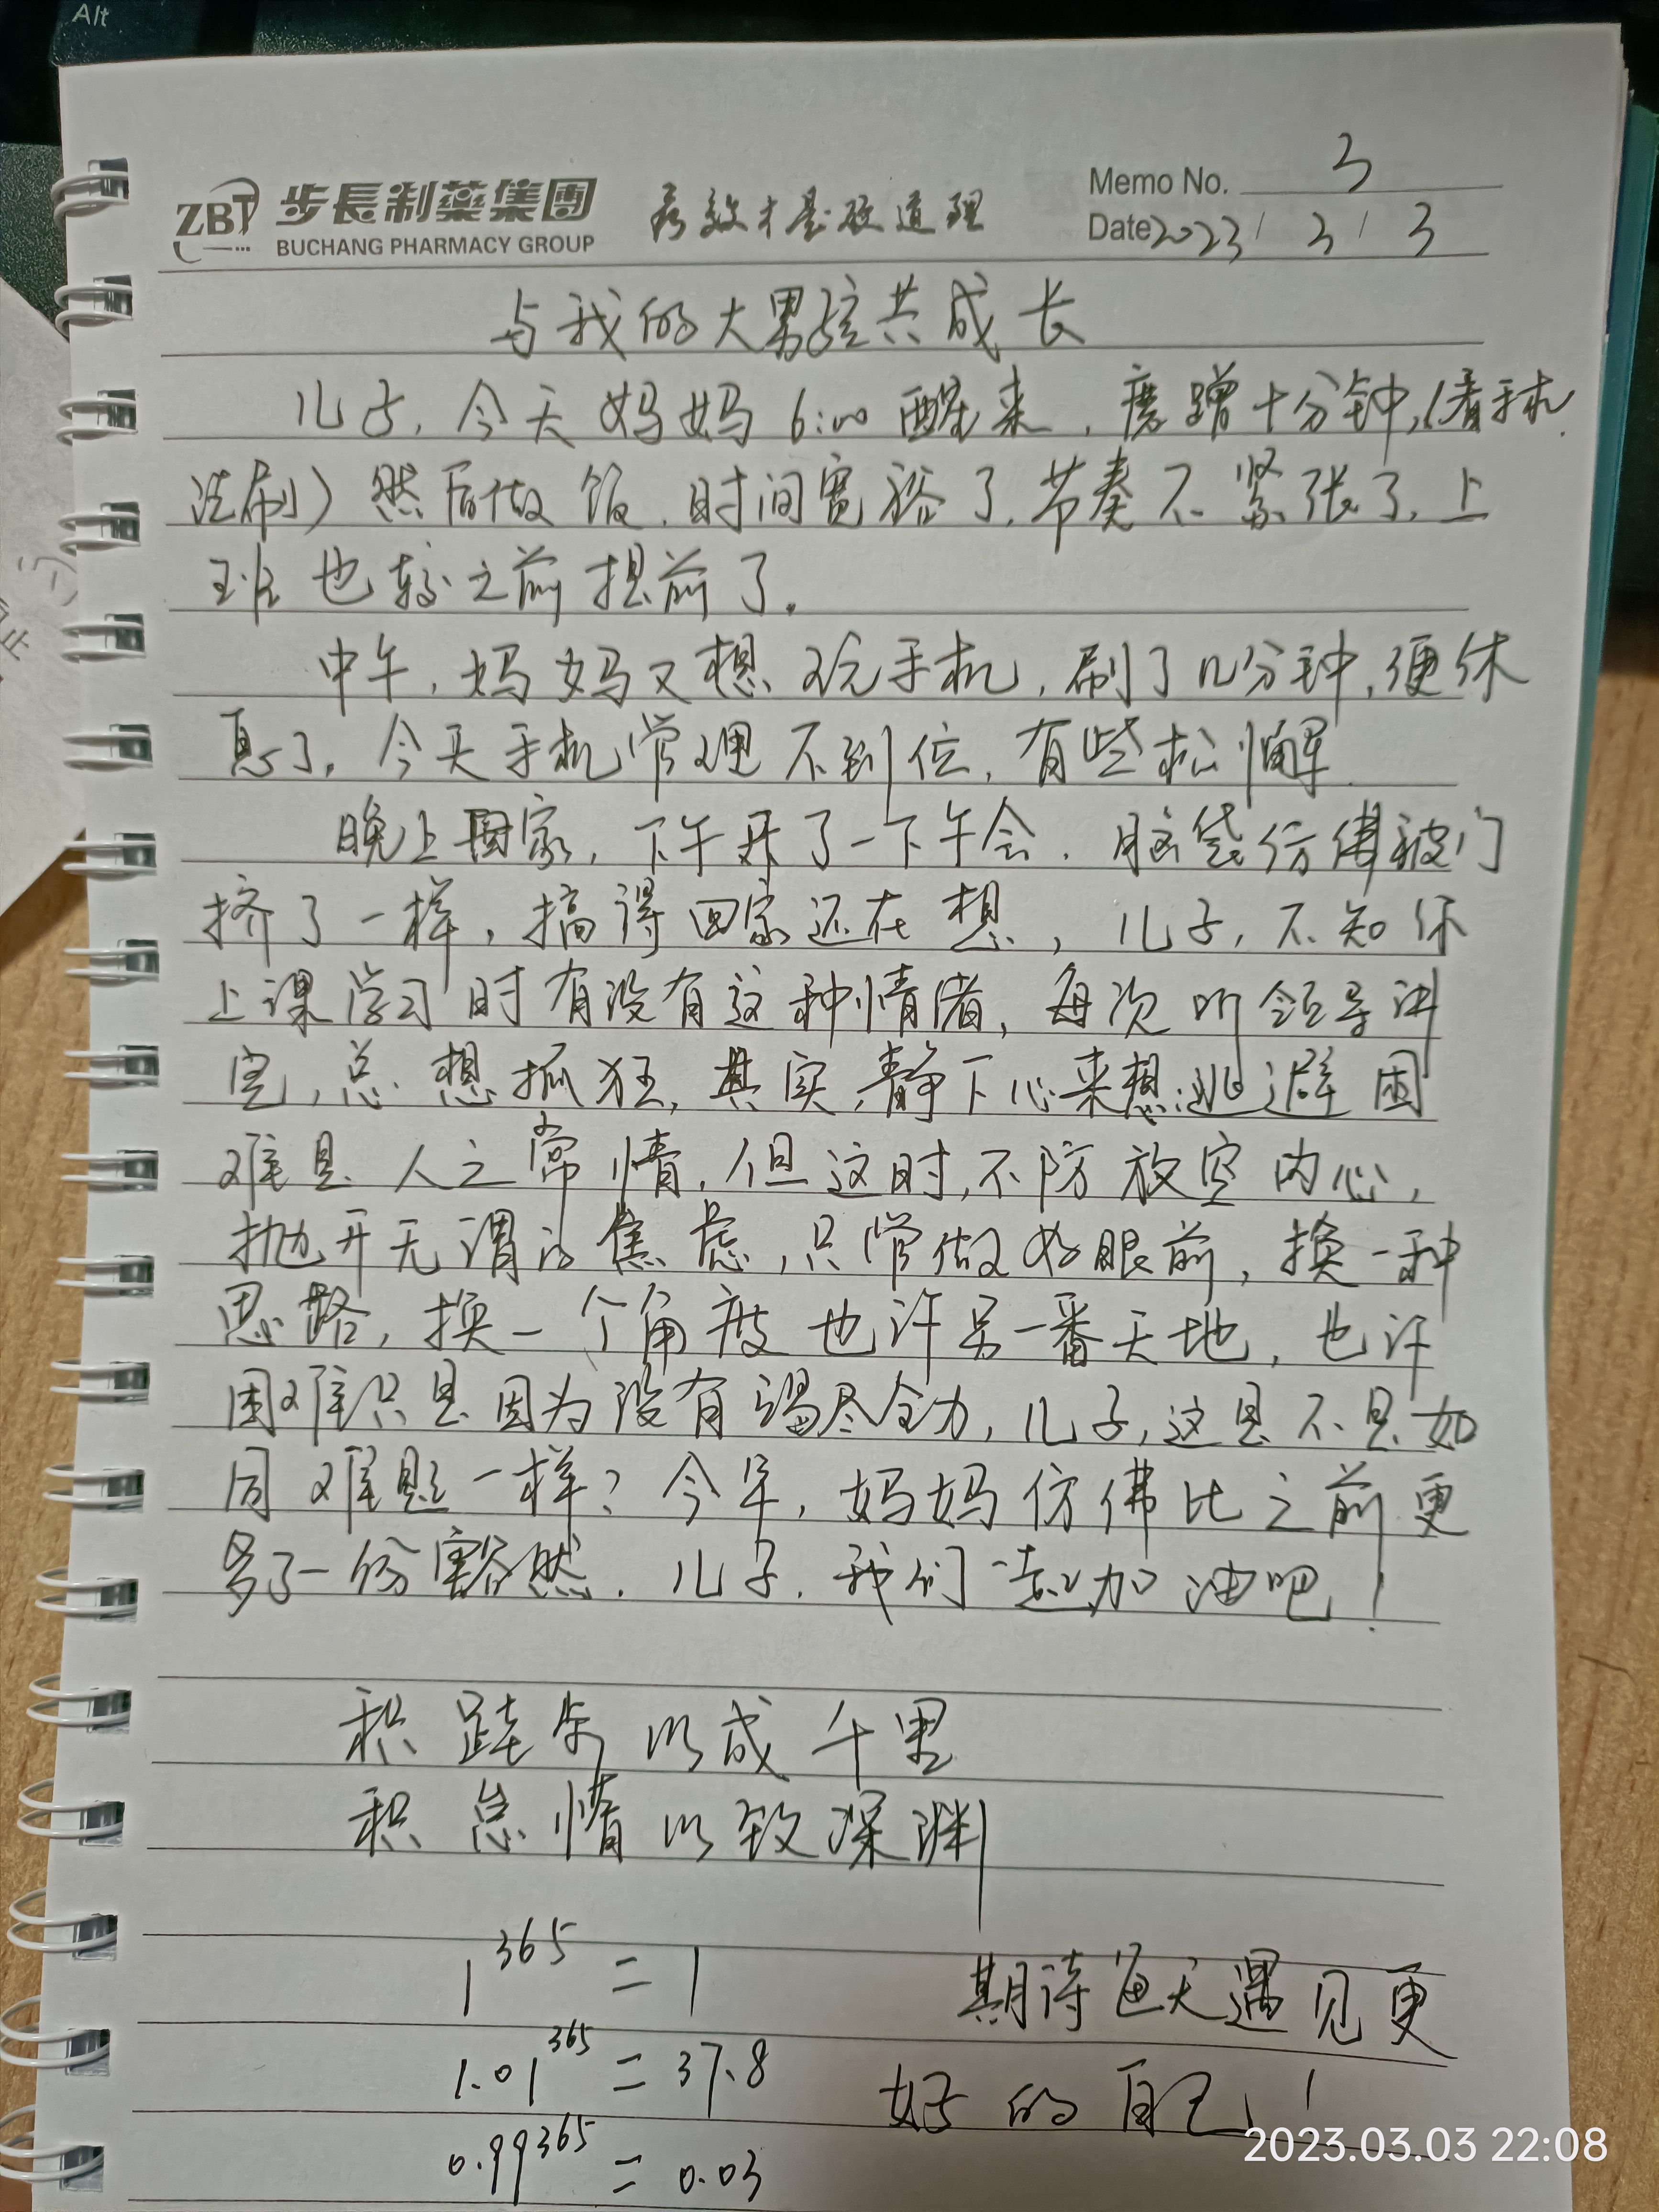 Alt
ZBT 步長制藥集團 疗效才是硬道理 Memo No. 3
BUCHANG PHARMACY GROUP Date 2023/3/3
与我的大男孩共成长
儿子，今天妈妈6:00醒来，磨蹭十分钟，(看手机
洗刷）然后做饭，时间宽裕了，节奏不紧张了，上
班也较之前提前了。
中午，妈妈又想玩手机，刷了几分钟，便休
息了，今天手机管理不到位，有些松懈
晚上回家，下午开了一下午会，脑袋仿佛被门
挤了一样，搞得回家还在想，儿子，不知你
上课学习时有没有这种情绪，每次听领导讲
完，总想抓狂，其实，静下心来想，逃避困
难是人之常情，但这时，不防放空内心，
抛开无谓的焦虑，只管做好眼前，换一种
思路，换一个角度也许另一番天地，也许
困难只是因为没有竭尽全力，儿子，这是不是如
同难题一样？今年，妈妈仿佛比之前更
多了一份豁然，儿子，我们一起加油吧！
积跬步以成千里
积怠惰以致深渊
1^365 = 1 期待每天遇见更
1.01^365 = 37.8 好的自己！
0.99^365 = 0.03
2023.03.03 22:08